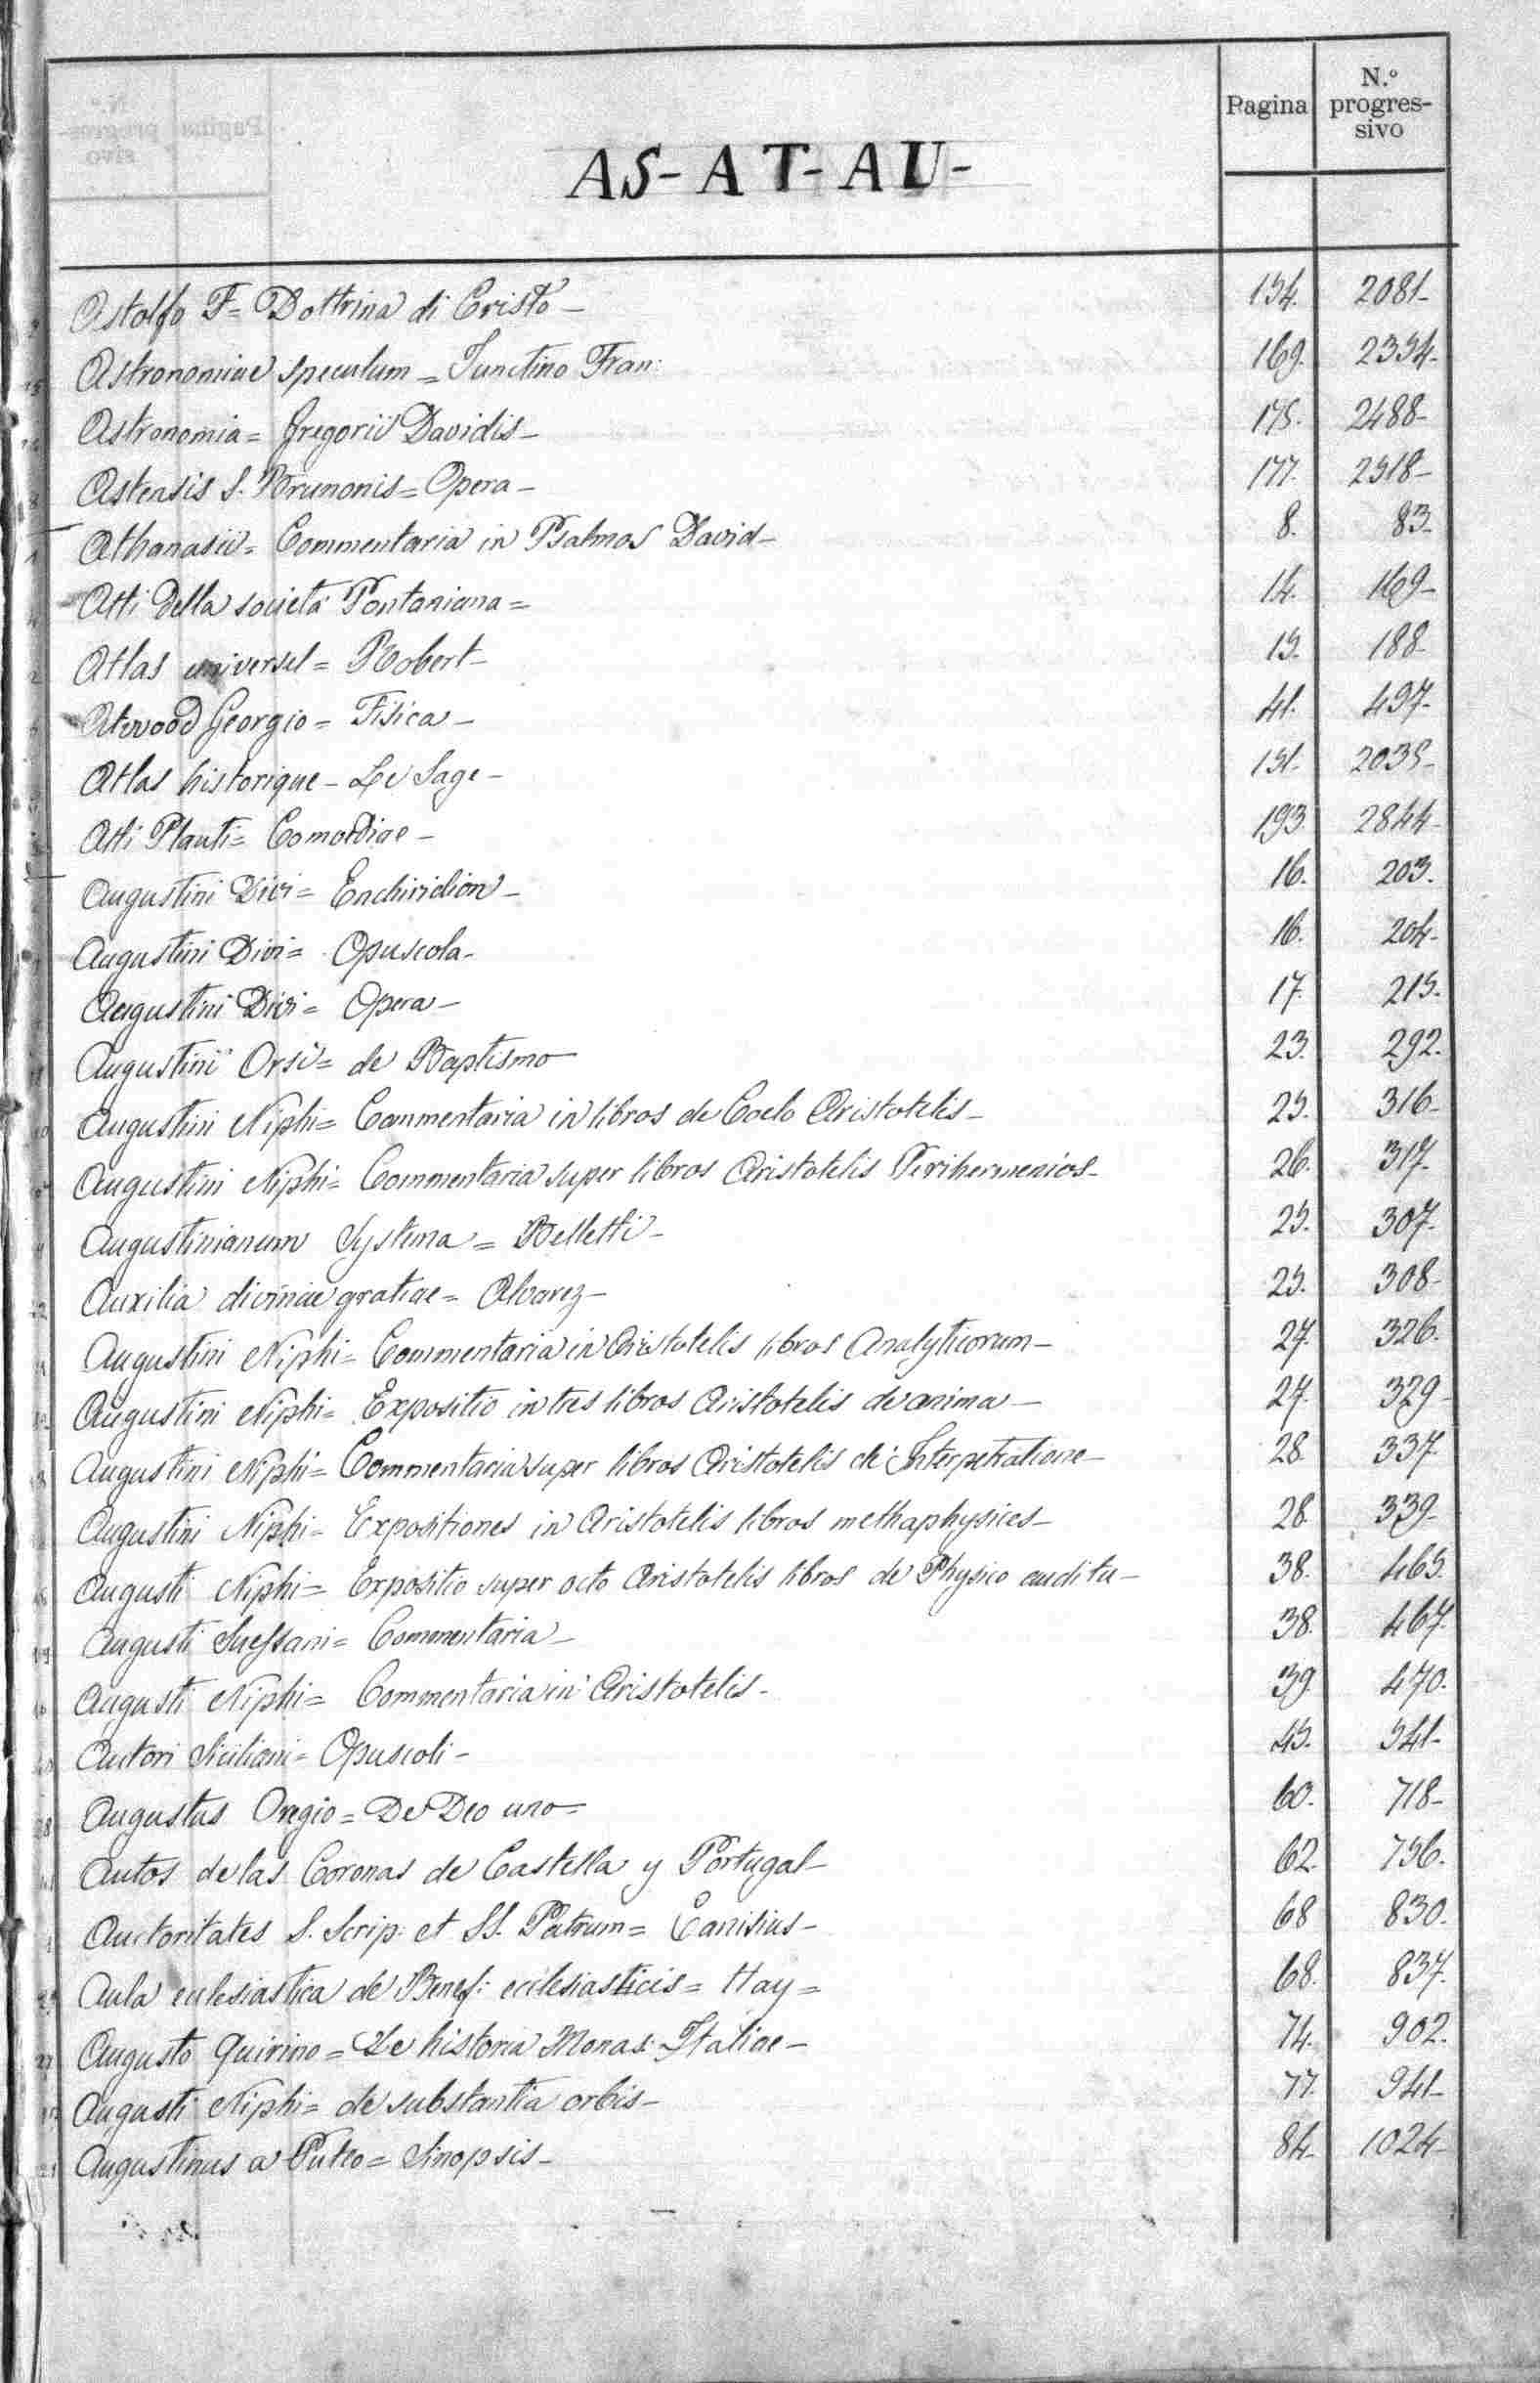 Pagina N.º progres-sivo
AS-AT-AU-
Astolfo F= Dottrina di Cristo- 154. 2081-
Astronomiae speculum = Junctino Fran: 169. 2394-
Astronomia= Gregorii Davidis- 175. 2488-
Astensis S. Brunonis= Opera- 177. 2518-
Athanasii= Commentaria in Psalmos David- 8. 83-
Atti della società Pontaniana= 14. 169-
Atlas universel= Robert- 15. 188-
Atwood Georgio= Fisica- 41. 497-
Atlas historique- Le Sage- 151- 2035-
Atti Plauti= Comoediae- 193. 2844-
Augustini Divi= Enchiridion- 16. 203.
Augustini Divi= Opuscola- 16. 204-
Augustini Divi= Opera- 17. 215.
Augustini Orsi= de Baptismo 23. 292.
Augustini Niphi= Commentaria in libros de Coelo Aristotelis- 25. 316-
Augustini Niphi= Commentaria super libros Aristotelis Perihermenios- 26. 317-
Augustinianum Systema= Belletti- 25. 307-
Auxilia divinae gratiae= Alvarez- 25. 308-
Augustini Niphi= Commentaria in Aristotelis libros Analyticorum- 27. 326-
Augustini Niphi= Expositio in tres libros Aristotelis de anima- 27. 329-
Augustini Niphi= Commentaria super libros Aristotelis de Interpetratione- 28. 337.
Augustini Niphi= Expositiones in Aristotelis libros methaphysices- 28. 339-
Augusti Niphi= Expositio super octo Aristotelis libros de Physico auditu- 38. 465.
Augusti Suessani= Commentaria- 38. 467.
Augusti Niphi= Commentaria in Aristotelis- 39. 470.
Autori Siciliani= Opuscoli- 45. 541-
Augustus Oregio= De Deo uno= 60. 718-
Autos de las Coronas de Castella y Portugal- 62. 736.
Auctoritates S. Scrip: et SS. Patrum= Canisius- 68 830.
Aula eclesiastica de Benef: ecclesiasticis= Hay= 68. 837.
Augusto Quirino= De historia Monas: Italiae- 74. 902.
Augusti Niphi= de substantia orbis- 77. 941-
Augustinus a Puteo= Sinopsis- 84- 1024-